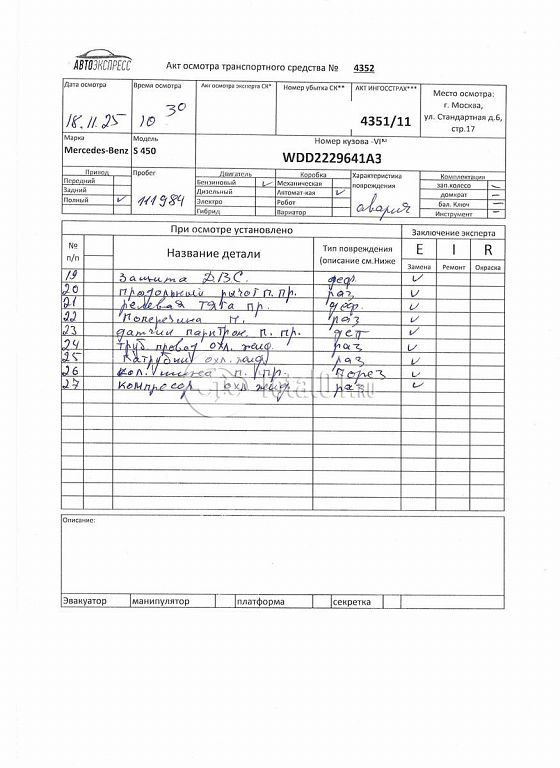 АВТОЭКСПРЕСС
Акт осмотра транспортного средства № 4352
Дата осмотра Время осмотра Акт осмотра эксперта СК* Номер убытка СК** АКТ ИНГОССТРАХ*** Место осмотра:
18.11.25 10 30 4351/11 г. Москва,
ул. Стандартная д.6,
стр.17
Марка Модель Номер кузова -VIN
Mercedes-Benz S 450 WDD2229641A3
Привод Пробег Двигатель Коробка Характеристика повреждения Комплектация
Передний Бензиновый ✓ Механическая зап.колесо –
Задний Дизельный Автомат-кая ✓ домкрат –
Полный ✓ 111984 Электро Робот авария бал. Ключ –
Гибрид Вариатор Инструмент –
При осмотре установлено Заключение эксперта
№ п/п Название детали Тип повреждения (описание см.Ниже E I R
Замена Ремонт Окраска
19 Защита ДВС. деф. ✓
20 продольный рычаг п. пр. раз ✓
21 рулевая тяга пр. деф. ✓
22 Поперечина п. раз ✓
23 датчик парктрон. п. пр. деф ✓
24 труб провод охл. жид. раз ✓
25 Патрубки охл. жид. раз ✓
26 кол. шина п. пр. порез ✓
27 компрессор охл. жид. раз ✓
TotalOff.RU
Описание:
Эвакуатор манипулятор платформа секретка